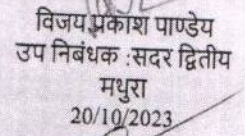 विजय प्रकाश पाण्डेय
उप निबंधक :सदर द्वितीय
मथुरा
20/10/2023